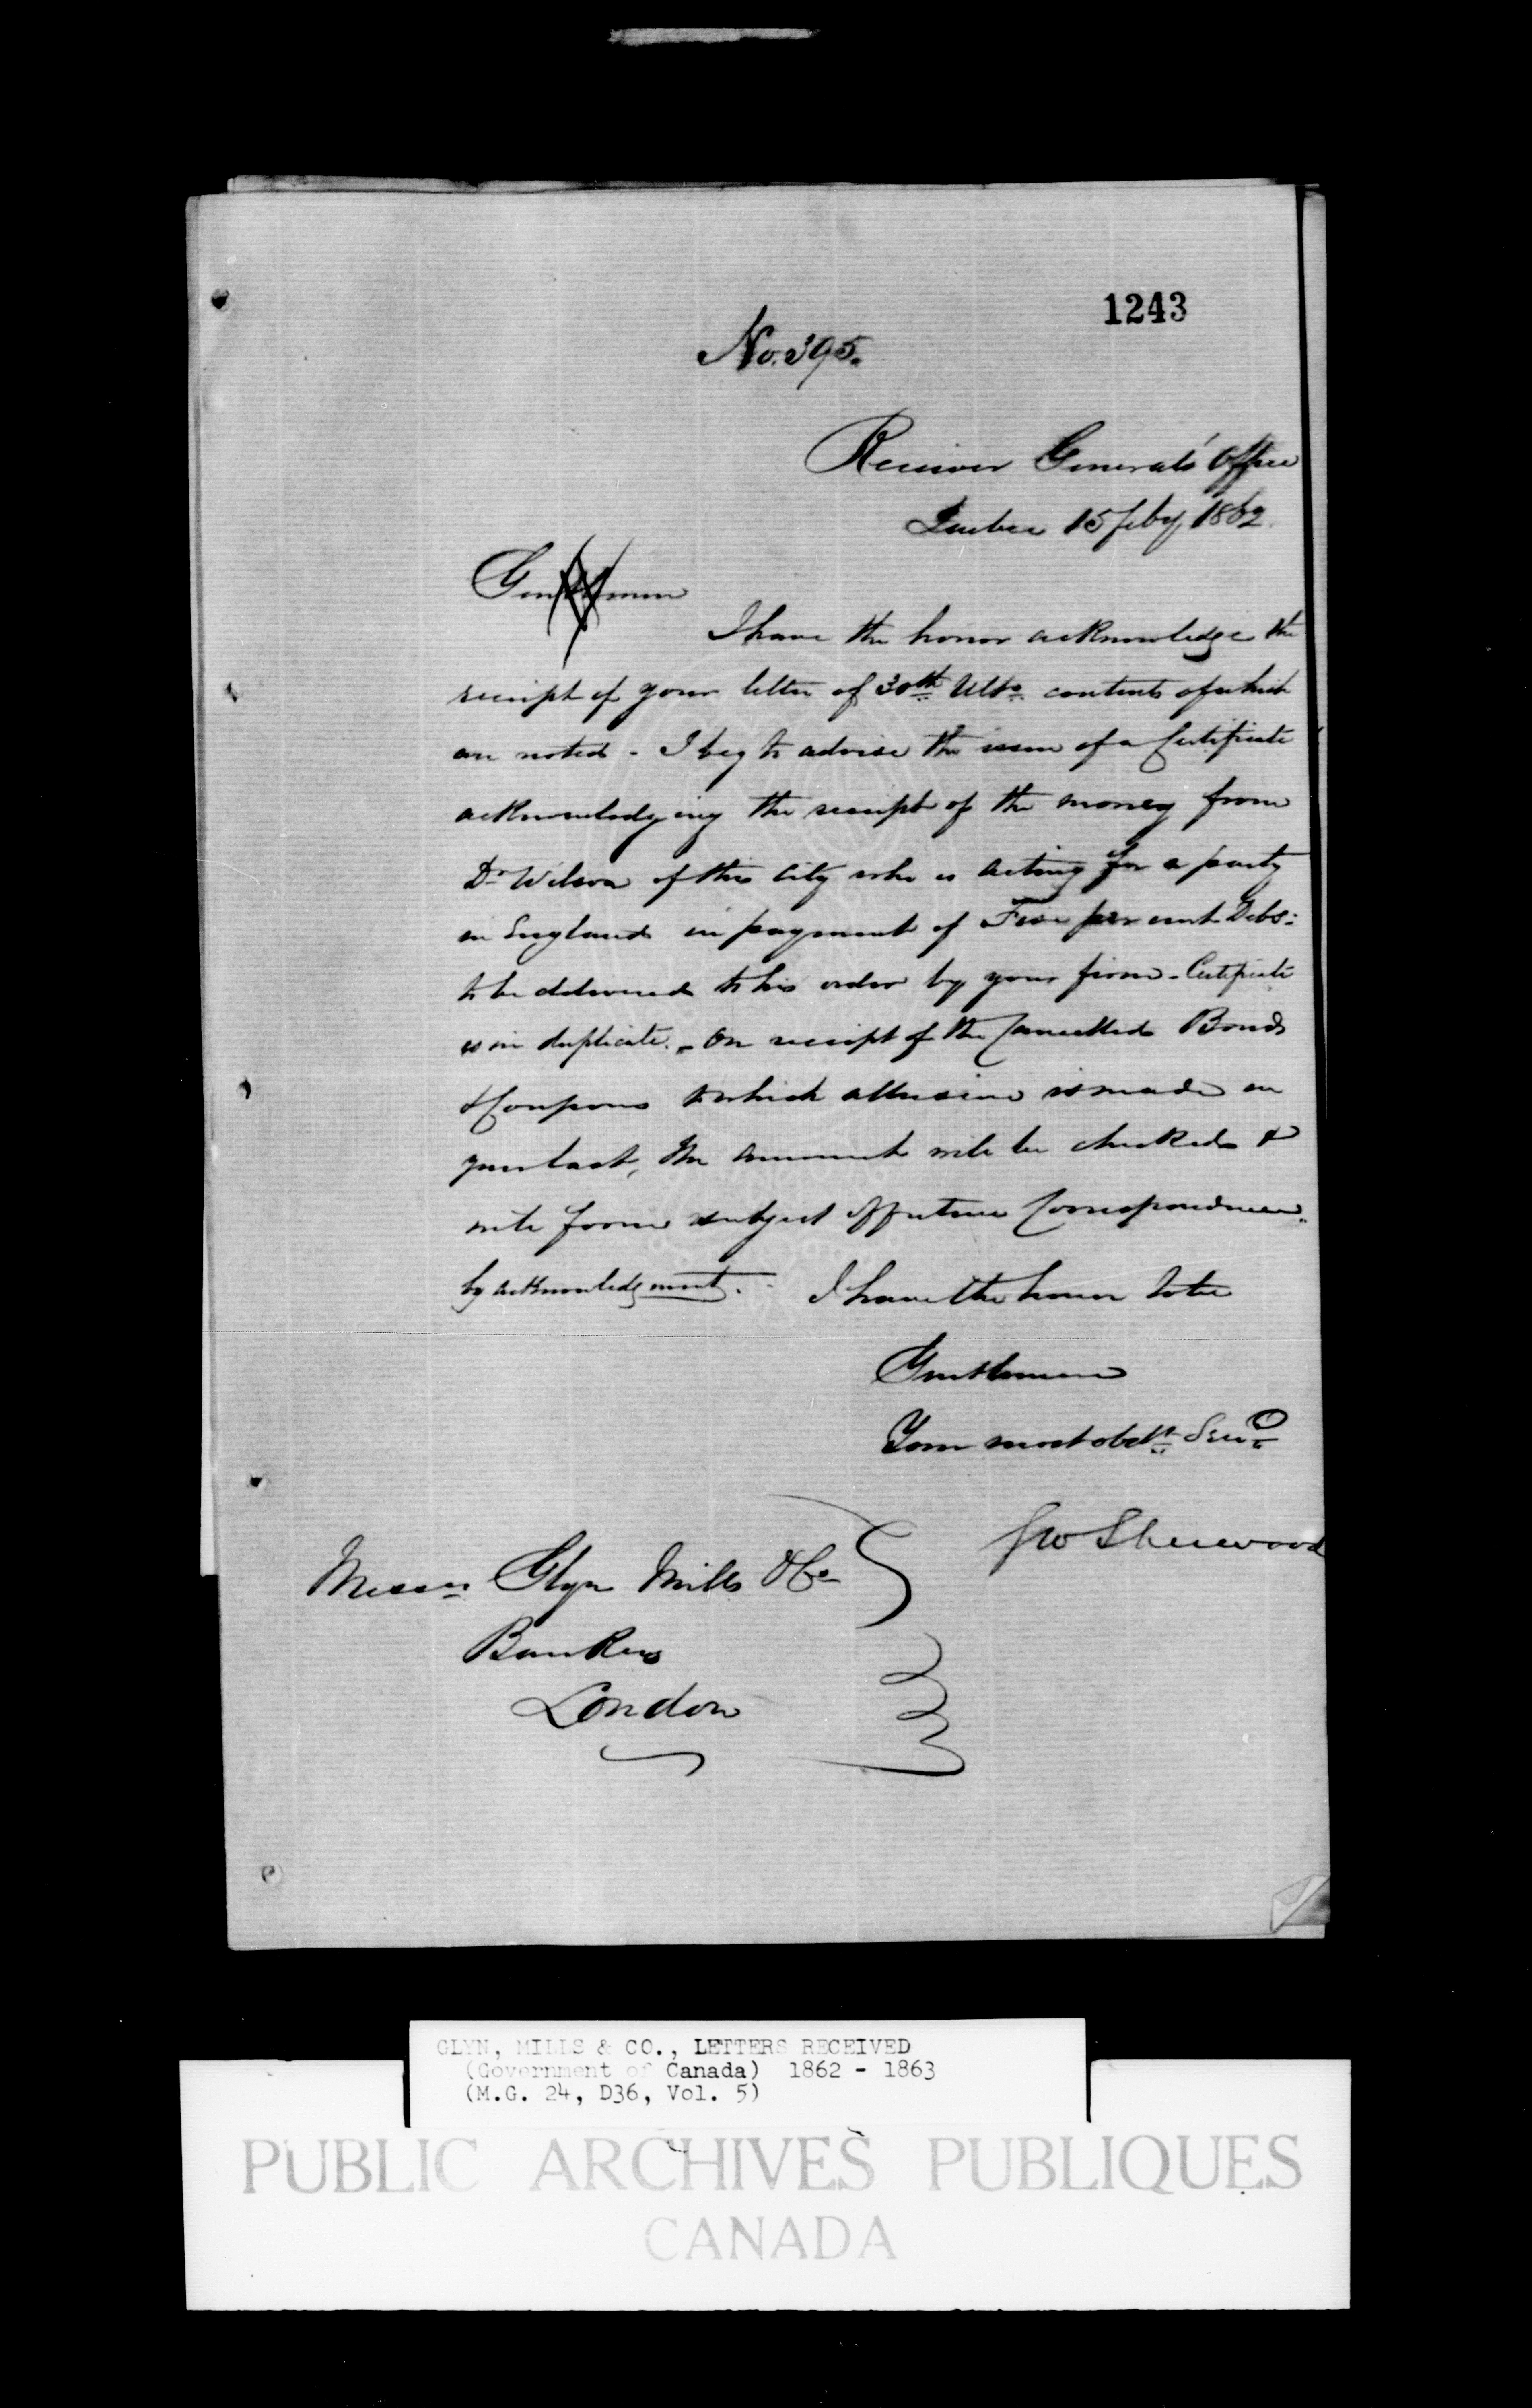 1243
No. 395.
Receiver General's Office
Quebec 15 feby 1862
Gentlemen
I have the honor acknowledge the
receipt of your letter of 30th Ulto. contents of which
are noted - I beg to advise the issue of a Certificate
acknowledging the receipt of the money from
Dr Wilson of this City who is acting for a party
in England in payment of Five per cent Debs:
to be delivered to his order by your firm - Certificate
is in duplicate. - On receipt of the Cancelled Bonds
& Coupons to which allusion is made in
your last, the amount will be checked &
will form subject of future Correspondence
by acknowledgment. - I have the honor to be
Gentlemen
Your most obdt. Servt.
Geo Sherwood
Messrs Glyn Mills & Co
Bankers
London
GLYN, MILLS & CO., LETTERS RECEIVED
(Government of Canada) 1862 - 1863
(M.G. 24, D36, Vol. 5)
PUBLIC ARCHIVES PUBLIQUES
CANADA